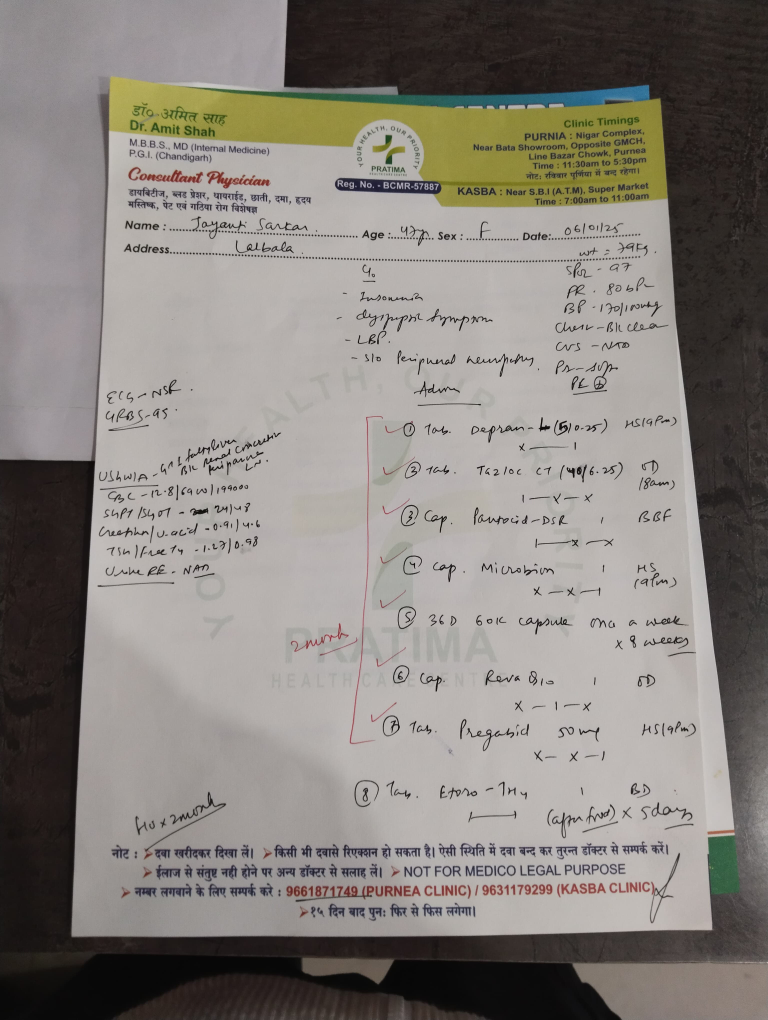 डॉ० अमित साह
Dr. Amit Shah
M.B.B.S., MD (Internal Medicine)
P.G.I. (Chandigarh)
Consultant Physician
डायबिटीज, ब्लड प्रेशर, थायराईड, छाती, दमा, हृदय
मस्तिष्क, पेट एवं गठिया रोग विशेषज्ञ
YOUR HEALTH, OUR PRIORITY
PRATIMA
Reg. No. - BCMR-57887
Clinic Timings
PURNIA : Nigar Complex,
Near Bata Showroom, Opposite GMCH,
Line Bazar Chowk, Purnea
Time : 11:30am to 5:30pm
नोट: रविवार पूर्णिया में बन्द रहेगा।
KASBA : Near S.B.I (A.T.M), Super Market
Time : 7:00am to 11:00am
Name : Jayanti Sarkar Age : 47y Sex : F Date: 06/01/25
Address Lalbala
wt = 79kg.
C/o
- Insomnia
- dyspeptic symptom
- LBP.
- S/o Peripheral neuropathy.
SPO2 - 97
PR - 80 bpm
BP - 170/100
Chest - B/L clear
CVS - NAD
PA - soft
PE ⊕
ECG - NSR.
GRBS - 95.
USG W/A - Gr I fatty liver
B/L renal concretion
CBC - 12.8/6900/199000
SGPT/SGOT - 24/48
Creatinine/U.acid - 0.91/4.6
TSH/Free T4 - 1.27/0.98
Urine RE - NAD
Advice
① Tab. Depran-L (5/0.25) HS (9Pm)
x — 1
② Tab. Tazloc CT (40/6.25) OD (8am)
1 — x — x
③ Cap. Pantocid-DSR 1 BBF
1 — x — x
④ Cap. Microbion 1 HS (9Pm)
x — x — 1
⑤ 36D 60K capsule once a week
x 8 weeks
2 month
PRATIMA
⑥ Cap. Reva Q10 1 OD
x — 1 — x
⑦ Tab. Pregabid 50mg HS (9Pm)
x — x — 1
⑧ Tab. Etoro-TH4 1 BD
(after food) x 5 days
x 2 month
नोट : ➤दवा खरीदकर दिखा लें। ➤किसी भी दवासे रिएक्शन हो सकता है। ऐसी स्थिति में दवा बन्द कर तुरन्त डॉक्टर से सम्पर्क करें।
➤ईलाज से संतुष्ट नही होने पर अन्य डॉक्टर से सलाह लें। ➤NOT FOR MEDICO LEGAL PURPOSE
➤नम्बर लगवाने के लिए सम्पर्क करे : 9661871749 (PURNEA CLINIC) / 9631179299 (KASBA CLINIC)
➤१५ दिन बाद पुन: फिर से फिस लगेगा।